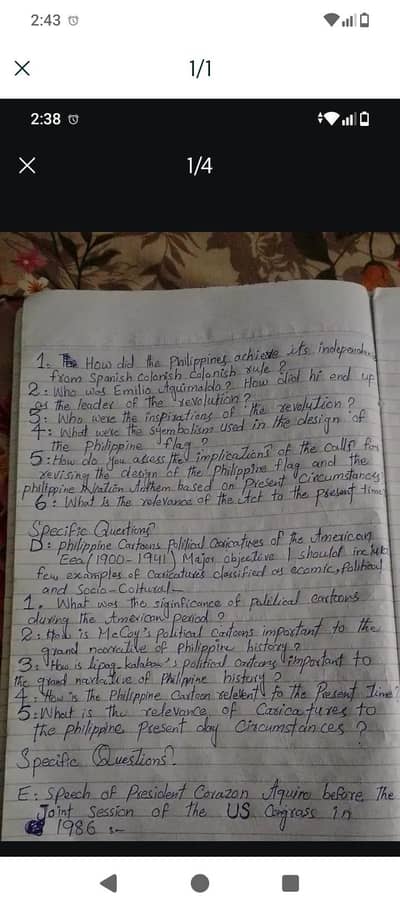 2:43
1/1
2:38
1/4
1. How did the Philippines achieve its independence
from Spanish colonish colonish rule ?
2: Who was Emilio Aguimaldo ? How did hi end up
as the leader of the revolution ?
3: Who were the inspirations of the revolution ?
4: What were the syembolism used in the design of
the Philippine flag ?
5: How do you assess the implications of the calls for
revising the design of the Philippine flag and the
philippine Nation Anthem based on Present Circumstances
6: What is the relevance of the Act to the present time
Specific Questions
D: philippine Cartoons political Caricatives of the American
Eea (1900-1941) Major objective I should include
few examples of Caricatures classified as ecomic, Political
and Socio-Coltural-
1. What was the siginficance of political cartoons
during the American period ?
2: How is McCoy's political Cartoons important to the
grand nooraative of philippine history ?
3: How is lipag-kalabaw's political Cartoons important to
the grand narrative of Philppine history ?
4: How is The Philippine Cartoon relelent to the Present Time?
5: What is the relevance of Caricatures to
the philippine Present day Circumstances ?
Specific Questions?
E: Speech of President Corazon Aquino before The
Joint Session of the US Congrass in
1986 :-